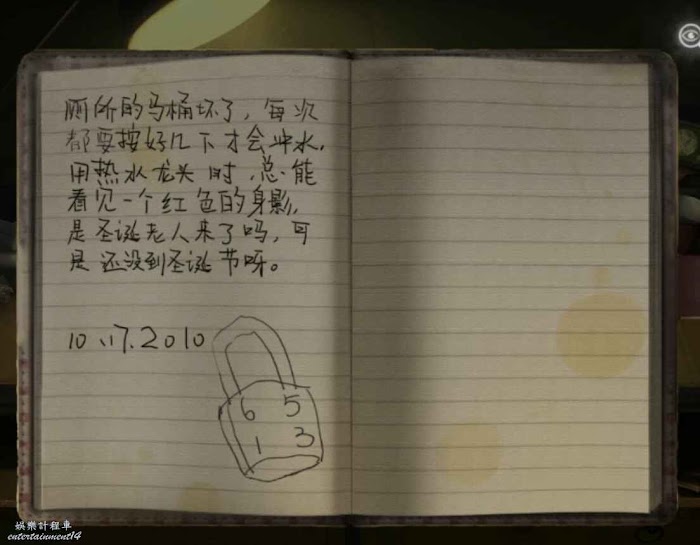 厕所的马桶坏了，每次
都要按好几下才会冲水，
用热水龙头时，总能
看见一个红色的身影，
是圣诞老人来了吗，可
是还没到圣诞节呀。
10.17.2010
6 5
1 3
娛樂計程車
entertainment14